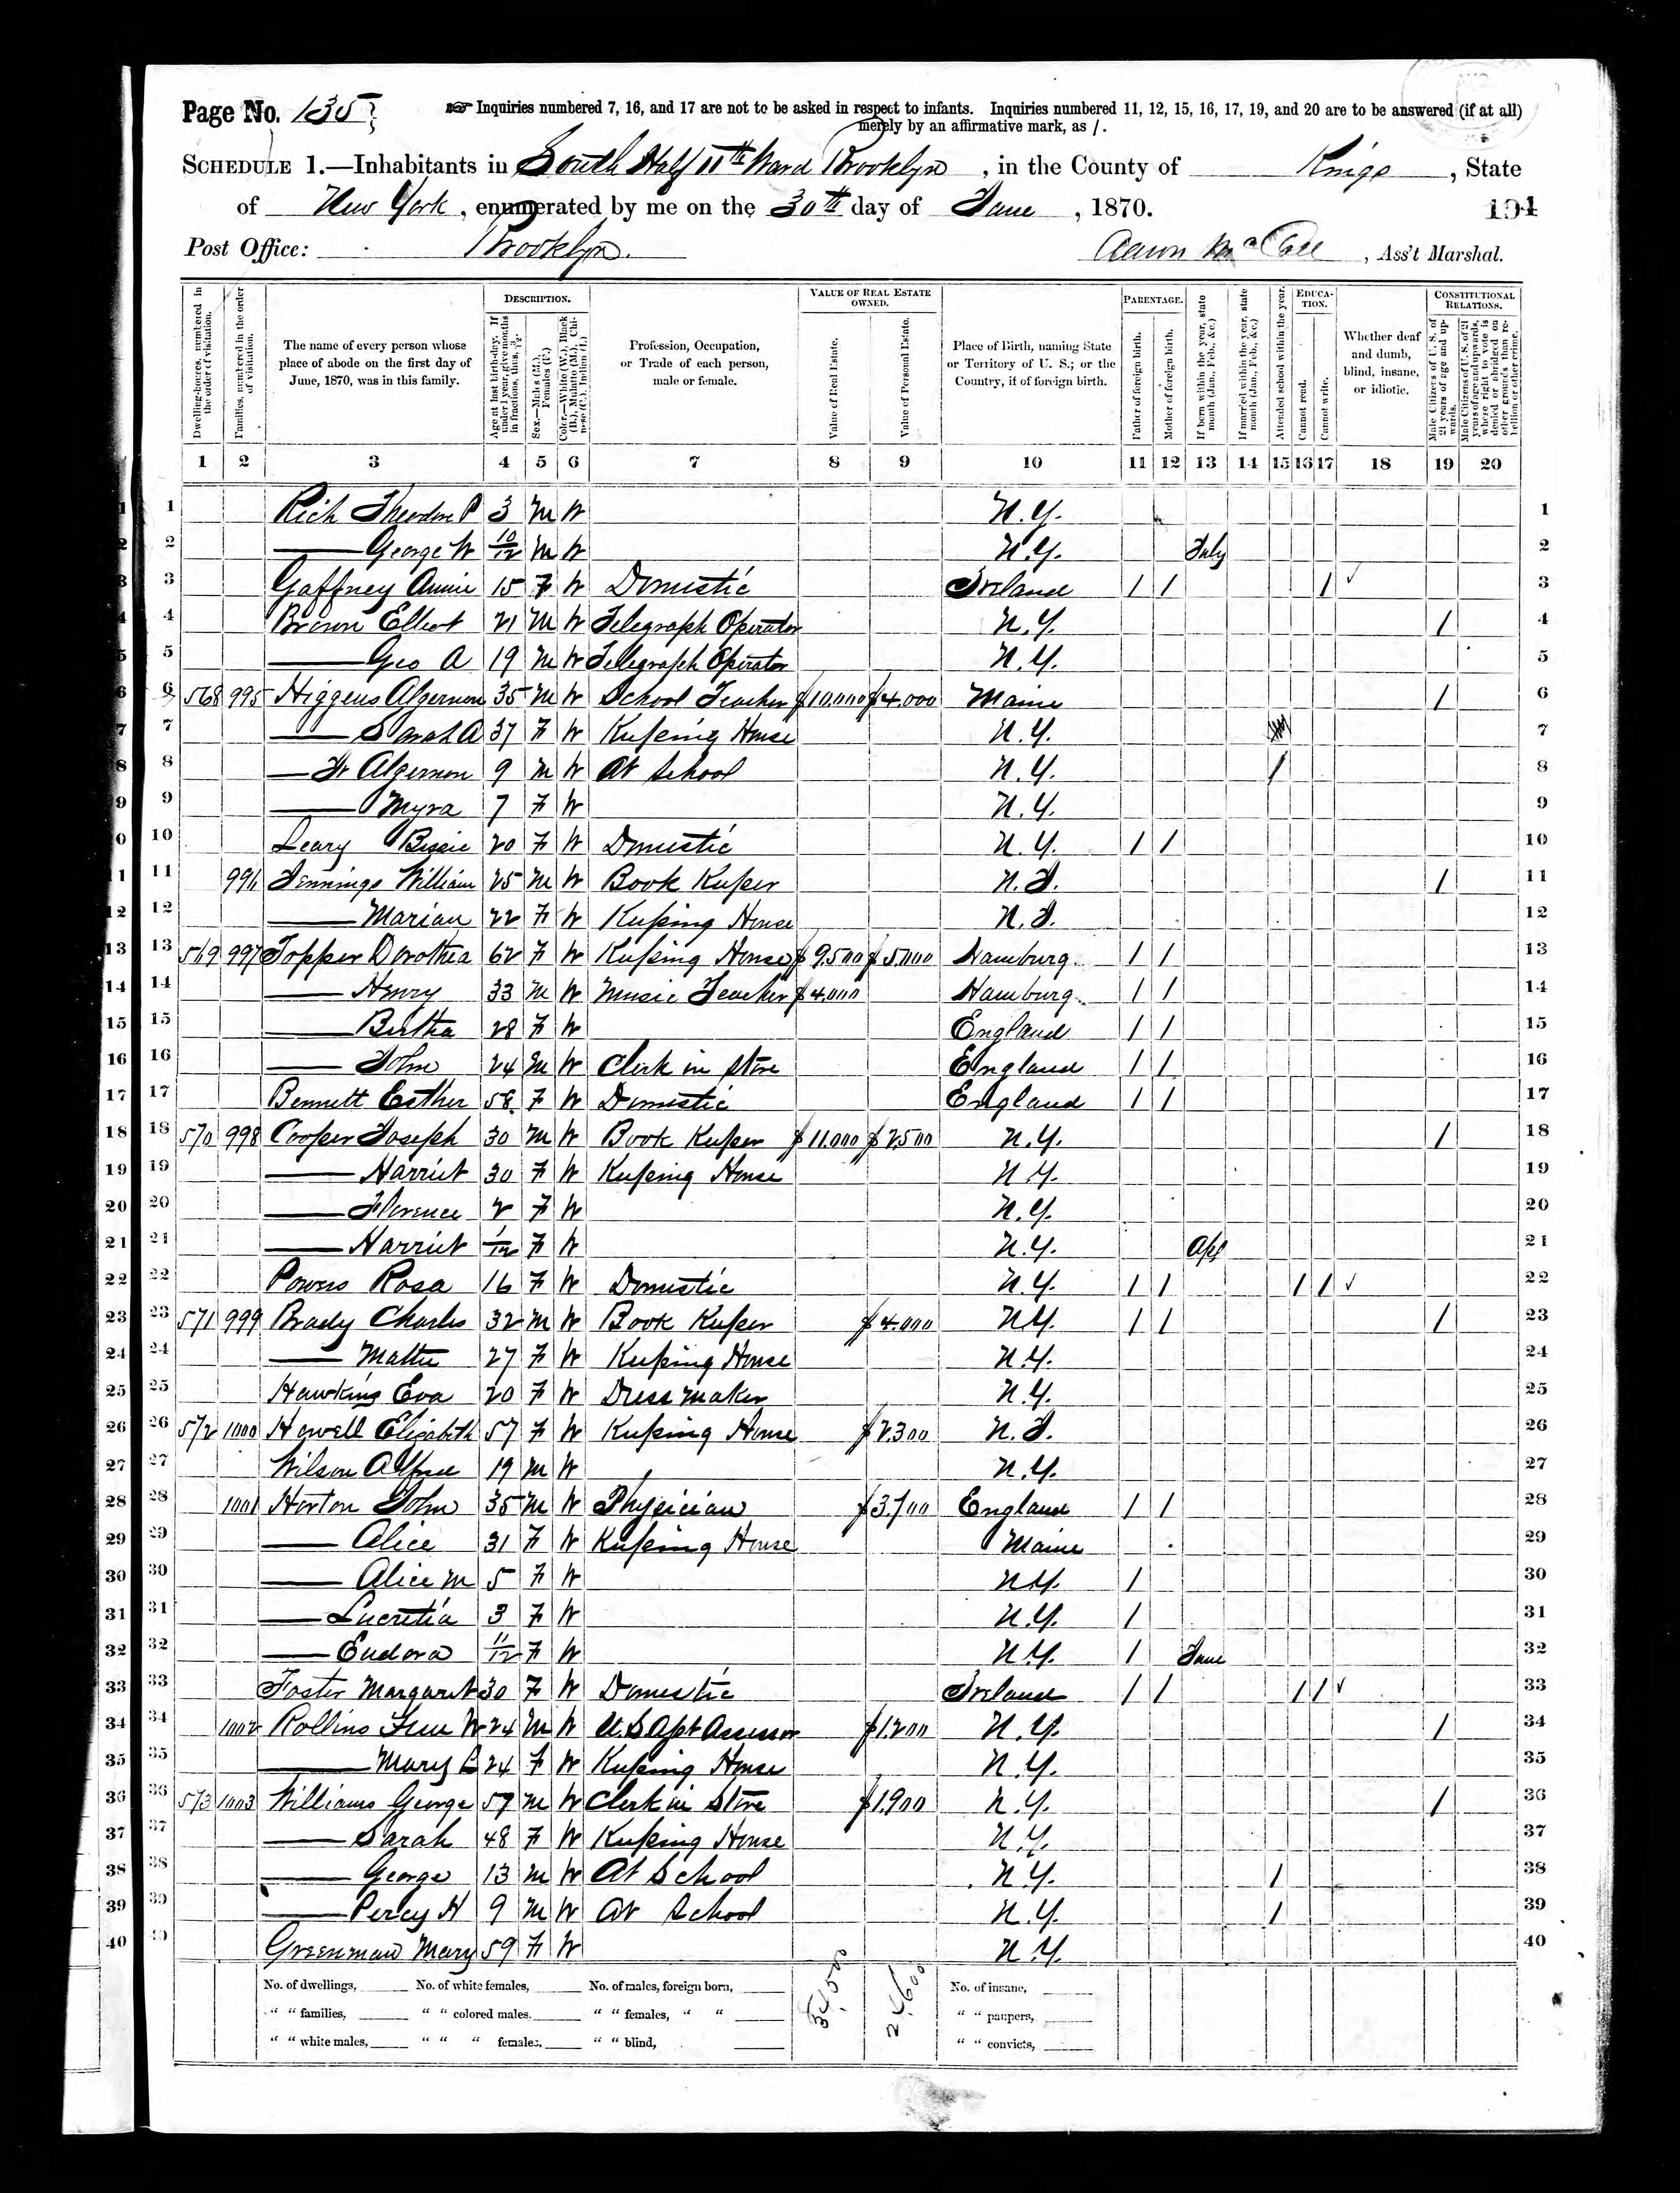 Page No. 135
Inquiries numbered 7, 16, and 17 are not to be asked in respect to infants. Inquiries numbered 11, 12, 15, 16, 17, 19, and 20 are to be answered (if at all)
merely by an affirmative mark, as /.
SCHEDULE 1.—Inhabitants in South Half 11th Ward Brooklyn, in the County of Kings, State
of New York, enumerated by me on the 30th day of June, 1870. 194
Post Office: Brooklyn. Aaron, Ass't Marshal.
VALUE OF REAL ESTATE OWNED. DESCRIPTION. PARENTAGE. EDUCATION. CONSTITUTIONAL RELATIONS.
Dwelling-houses, numbered in the order of visitation.
Families, numbered in the order of visitation.
The name of every person whose place of abode on the first day of June, 1870, was in this family.
Age at last birth-day. If under 1 year, give months in fractions, thus, 3/12.
Sex.—Males (M.), Females (F.)
Color.—White (W.), Black (B.), Mulatto (M.), Chinese (C.), Indian (I.)
Profession, Occupation, or Trade of each person, male or female.
Value of Real Estate.
Value of Personal Estate.
Place of Birth, naming State or Territory of U. S.; or the Country, if of foreign birth.
Father of foreign birth.
Mother of foreign birth.
If born within the year, state month (Jan., Feb., &c.)
If married within the year, state month (Jan., Feb., &c.)
Attended school within the year.
Cannot read.
Cannot write.
Whether deaf and dumb, blind, insane, or idiotic.
Male Citizens of U. S. of 21 years of age and upwards.
Male Citizens of U. S. of 21 years of age and upwards, where right to vote is denied or abridged on other grounds than rebellion or other crime.
1 2 3 4 5 6 7 8 9 10 11 12 13 14 15 16 17 18 19 20
1 Rich Theodore P 3 M W N.Y. 1
2 — George W 10/12 M W N.Y. July 2
3 Gaffney Annie 15 F W Domestic Ireland / / / ✓ 3
4 Brown Elbert 21 M W Telegraph Operator N.Y. / 4
5 — Geo A 19 M W Telegraph Operator N.Y. 5
6 568 995 Higgens Algernon 35 M W School Teacher $10.000 $4.000 Maine / 6
7 — Sarah A 37 F W Keeping House N.Y. 7
8 — Algernon 9 M W At School N.Y. / 8
9 — Myra 7 F W N.Y. 9
10 Leary Bessie 20 F W Domestic N.Y. / / 10
11 996 Jennings William 25 M W Book Keeper N.J. / 11
12 — Marian 22 F W Keeping House N.J. 12
13 569 997 Topper Dorothea 62 F W Keeping House $9.500 $5.000 Hamburg / / 13
14 — Henry 33 M W Music Teacher $4.000 Hamburg / / 14
15 — Bertha 28 F W England / / 15
16 — John 24 M W Clerk in Store England / / 16
17 Bennett Esther 58 F W Domestic England / / 17
18 570 998 Cooper Joseph 30 M W Book Keeper $11.000 $2.500 N.Y. / 18
19 — Harriet 30 F W Keeping House N.Y. 19
20 — Florence 2 F W N.Y. 20
21 — Harriet 1/12 F W N.Y. Apl 21
22 Powers Rosa 16 F W Domestic N.Y. / / / / ✓ 22
23 571 999 Brady Charles 32 M W Book Keeper $4.000 N.Y. / / / 23
24 — Mattie 27 F W Keeping House N.Y. 24
25 Hawkins Eva 20 F W Dress Maker N.Y. 25
26 572 1000 Howell Elizabeth 57 F W Keeping House $2.300 N.J. 26
27 Wilson 19 M W N.Y. 27
28 1001 Horton John 35 M W Physician England / / 28
29 — Alice 31 F W Keeping House Maine 29
30 — Alice M 5 F W N.Y. / 30
31 — Lucretia 3 F W N.Y. / 31
32 — Eudora 11/12 F W N.Y. / June 32
33 Foster Margaret 30 F W Domestic Ireland / / / / ✓ 33
34 1002 Rollins W 24 M W U.S. Assessor $1.200 N.Y. / 34
35 — Mary 24 F W Keeping House N.Y. 35
36 573 1003 Williams George 57 M W Clerk in Store $1.900 N.Y. / 36
37 — Sarah 48 F W Keeping House N.Y. 37
38 — George 13 M W At School N.Y. / 38
39 — Percy H 9 M W At School N.Y. / 39
40 Greenman Mary 59 F W N.Y. 40
No. of dwellings, No. of white females, No. of males, foreign born, 34.500 24.600 No. of insane,
" " families, " " colored males, " " females, " " " " paupers,
" " white males, " " " females, " " blind, " " convicts,